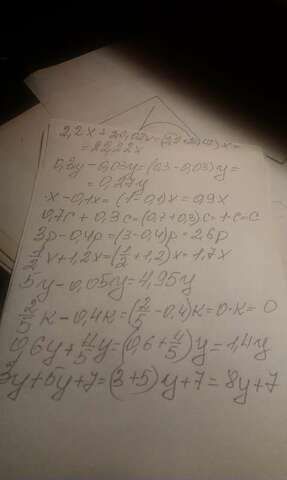 2,2x + 20,02x = (2,2+20,02)x =
= 22,22x
0,3y - 0,03y = (0,3 - 0,03)y =
= 0,27y
x - 0,1x = (1 - 0,1)x = 0,9x
0,7c + 0,3c = (0,7 + 0,3)c = 1·c = c
3p - 0,4p = (3 - 0,4)p = 2,6p
1/2 x + 1,2x = (1/2 + 1,2)x = 1,7x
5y - 0,05y = 4,95y
2/5 k - 0,4k = (2/5 - 0,4)k = 0·k = 0
0,6y + 4/5 y = (0,6 + 4/5)y = 1,4y
3y + 5y + 7 = (3 + 5)y + 7 = 8y + 7